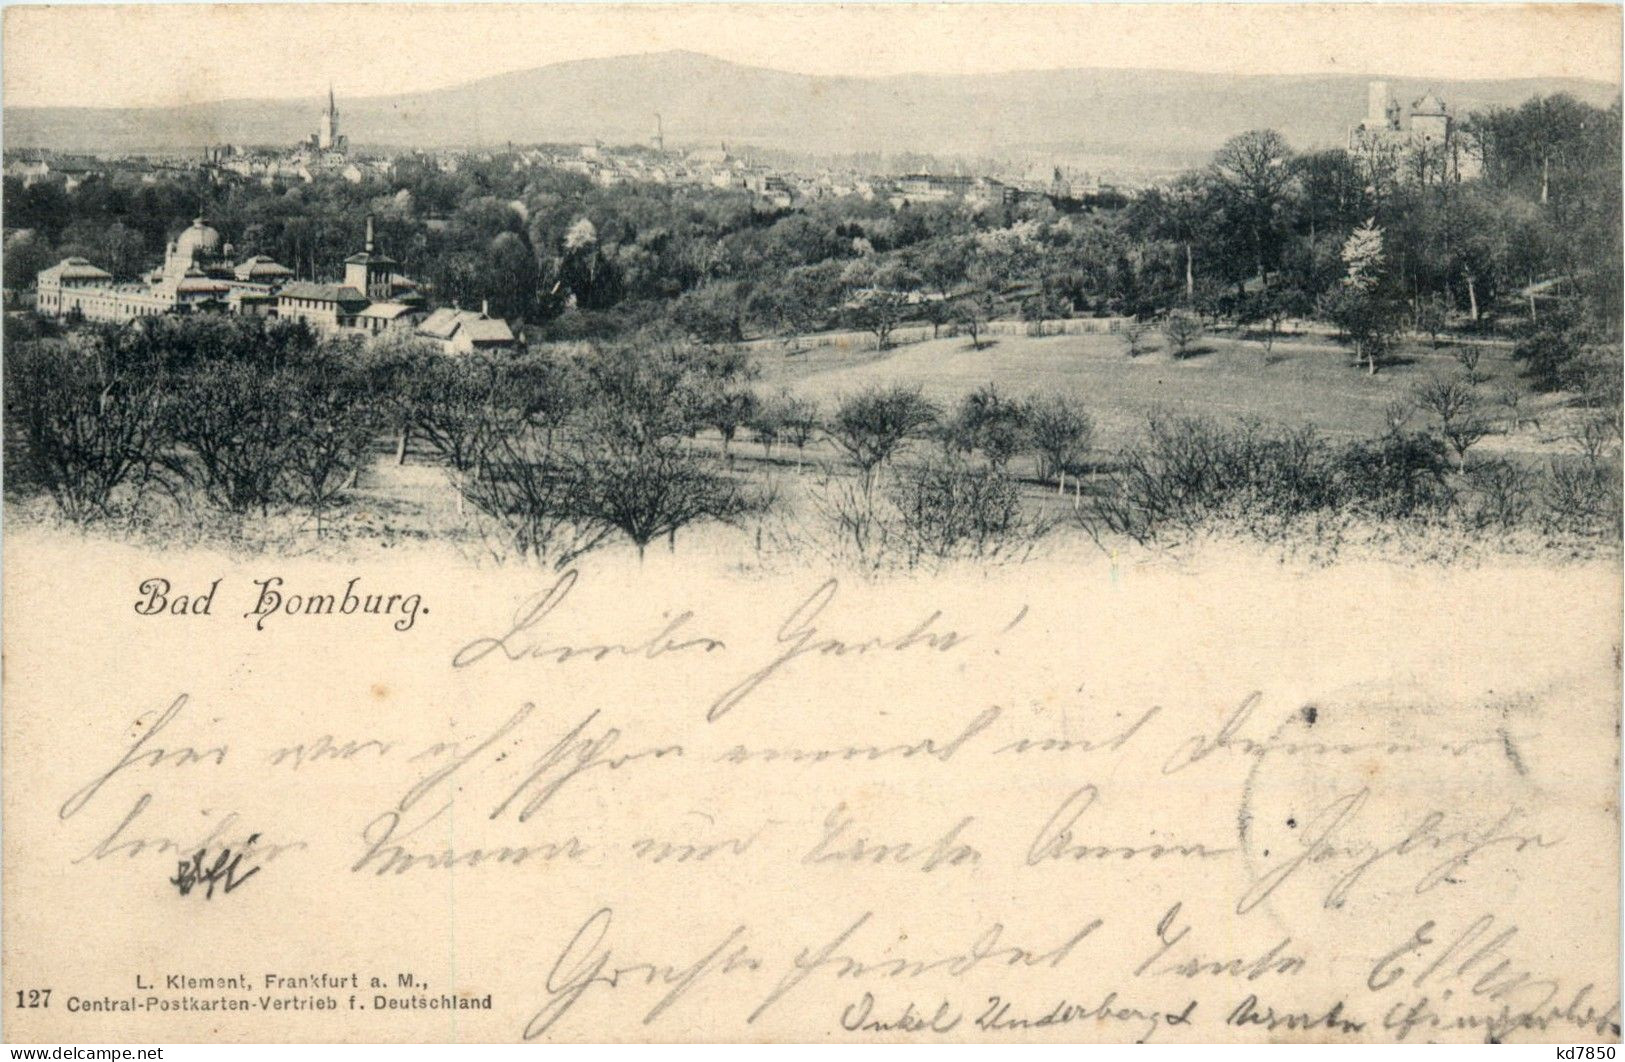 Bad Homburg.
Liebe Gerta!
Hier war ich schon einmal mit Deiner
lieben Mama und Tante Anna. Herzliche
Grüsse sendet Tante Ella
Onkel
L. Klement, Frankfurt a. M.,
127 Central-Postkarten-Vertrieb f. Deutschland
kd7850